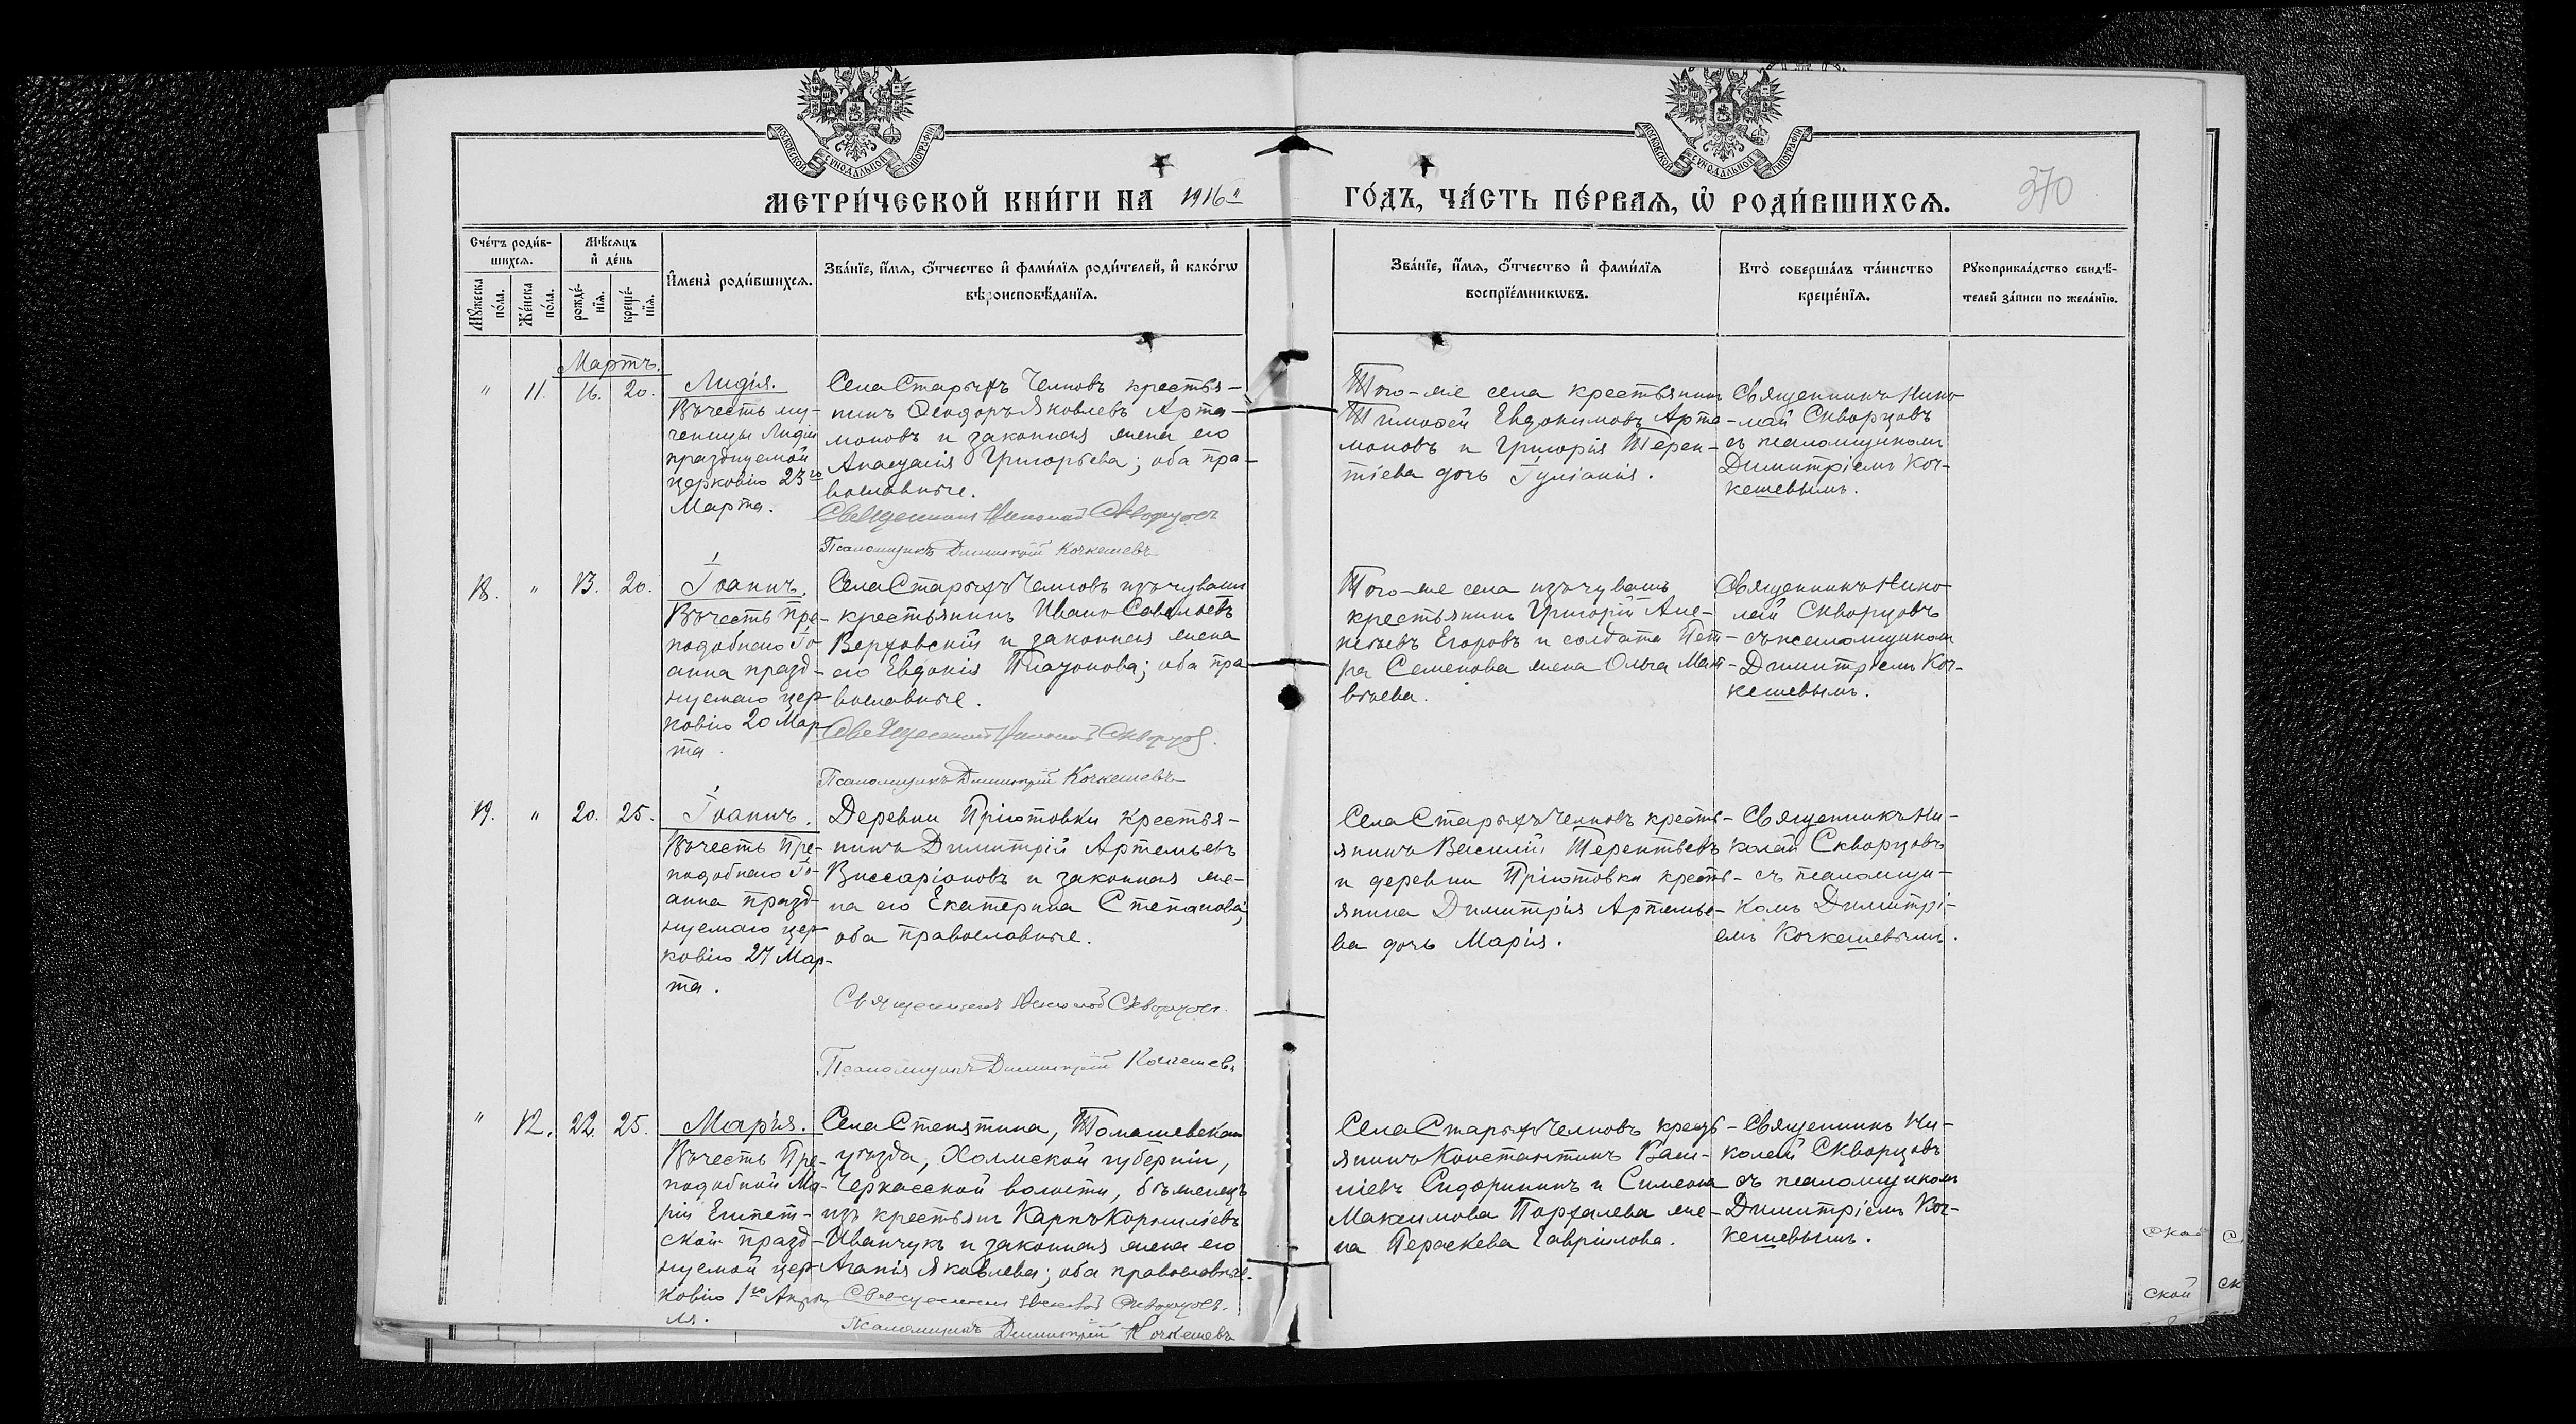 МОСКОВСКОЙ СѴНОДАЛЬНОЙ ТИПОГРАФІИ
МОСКОВСКОЙ СѴНОДАЛЬНОЙ ТИПОГРАФІИ
МЕТРИ́ЧЕСКОЙ КНИ́ГИ НА 1916й ГО́ДЪ, ЧА́СТЬ ПЕ́РВАѦ, Ѡ҆ РОДИ́ВШИХСѦ.
370
Сче́тъ роди́в-
шихсѧ.
Мꙋ́жеска
по́ла.
Же́нска
по́ла.
Мѣ́сѧцъ
и҆ де́нь
рожде́-
нїѧ.
креще́-
нїѧ.
И҆мена̀ роди́вшихсѧ.
Зва́нїе, и҆́мѧ, ѻ҆́тчество и҆ фами́лїѧ роди́телей, и҆ како́гѡ
вѣроисповѣ́данїѧ.
Зва́нїе, и҆́мѧ, ѻ҆́тчество и҆ фами́лїѧ
воспрїе́мникѡвъ.
Кто̀ соверша́лъ та́инство
креще́нїѧ.
Рꙋкоприкла́дство свидѣ́-
телей за́писи по жела́нїю.
Мартъ.
" 11. 16. 20.
Лидія.
Въ честь му-
ченицы Лидіи
празднуемой
церковію 23го
Марта.
Села Старыхъ Челновъ крестья-
нинъ Ѳеодоръ Яковлевъ Арта-
моновъ и законная жена его
Анастасія Григорьева; оба пра-
вославные.
Священникъ Николай Скворцовъ
Псаломщикъ Димитрій Кочкешевъ
Того-же села крестьянинъ
Тимоѳей Евдокимовъ Арта-
моновъ и Григорія Терен-
тіева дочь Іуліанія.
Священникъ Нико-
лай Скворцовъ
съ псаломщикомъ
Димитріемъ Коч-
кешевымъ.
18. " 13. 20.
Іоаннъ.
Въ честь Пре-
подобнаго Іо-
анна празд-
нуемаго цер-
ковію 20 Мар-
та.
Села Старыхъ Челновъ изъ чувашъ
крестьянинъ Иванъ Савельевъ
Верховскій и законная жена
его Евдокія Платонова; оба пра-
вославные.
Священникъ Николай Скворцовъ.
Псаломщикъ Димитрій Кочкешевъ
Того-же села изъ чувашъ
крестьянинъ Григорій
Егоровъ и солдата Пет-
ра Семенова жена Ольга Мат-
вѣева.
Священникъ Нико-
лай Скворцовъ
съ псаломщикомъ
Димитріемъ Коч-
кешевымъ.
19. " 20. 25.
Іоаннъ.
Въ честь Пре-
подобнаго Іо-
анна празд-
нуемаго цер-
ковію 27 Мар-
та.
Деревни Пріютовки крестья-
нинъ Димитрій Артемьевъ
Виссаріоновъ и законная же-
на его Екатерина Степанова;
оба православные.
Священникъ Николай Скворцовъ.
Псаломщикъ Димитрій Кочкешевъ
Села Старыхъ Челновъ кресть-
янинъ Василій Терентьевъ
и деревни Пріютовки кресть-
янина Димитрія Артемье-
ва дочь Марія.
Священникъ Ни-
колай Скворцовъ
съ псаломщи-
комъ Димитрі-
емъ Кочкешевымъ.
" 12. 22. 25.
Марія.
Въ честь Пре-
подобной Ма-
ріи Египет-
ской празд-
нуемой цер-
ковію 1го Апрѣ-
ля.
Села Стенятина, Томашевскаго
уѣзда, Холмской губерніи,
Черкасской волости, бѣженецъ
изъ крестьянъ Карпъ Корниліевъ
Иванчукъ и законная жена его
Агапія Яковлева; оба православные.
Священникъ Николай Скворцовъ.
Псаломщикъ Димитрій Кочкешевъ
Села Старыхъ Челновъ кресть-
янинъ Константинъ Васи-
ліевъ Сидоринъ и Симеона
Максимова Порфалева же-
на Пераскева Гаврилова.
Священникъ Ни-
колай Скворцовъ
съ псаломщикомъ
Димитріемъ Коч-
кешевымъ.
ской
ской